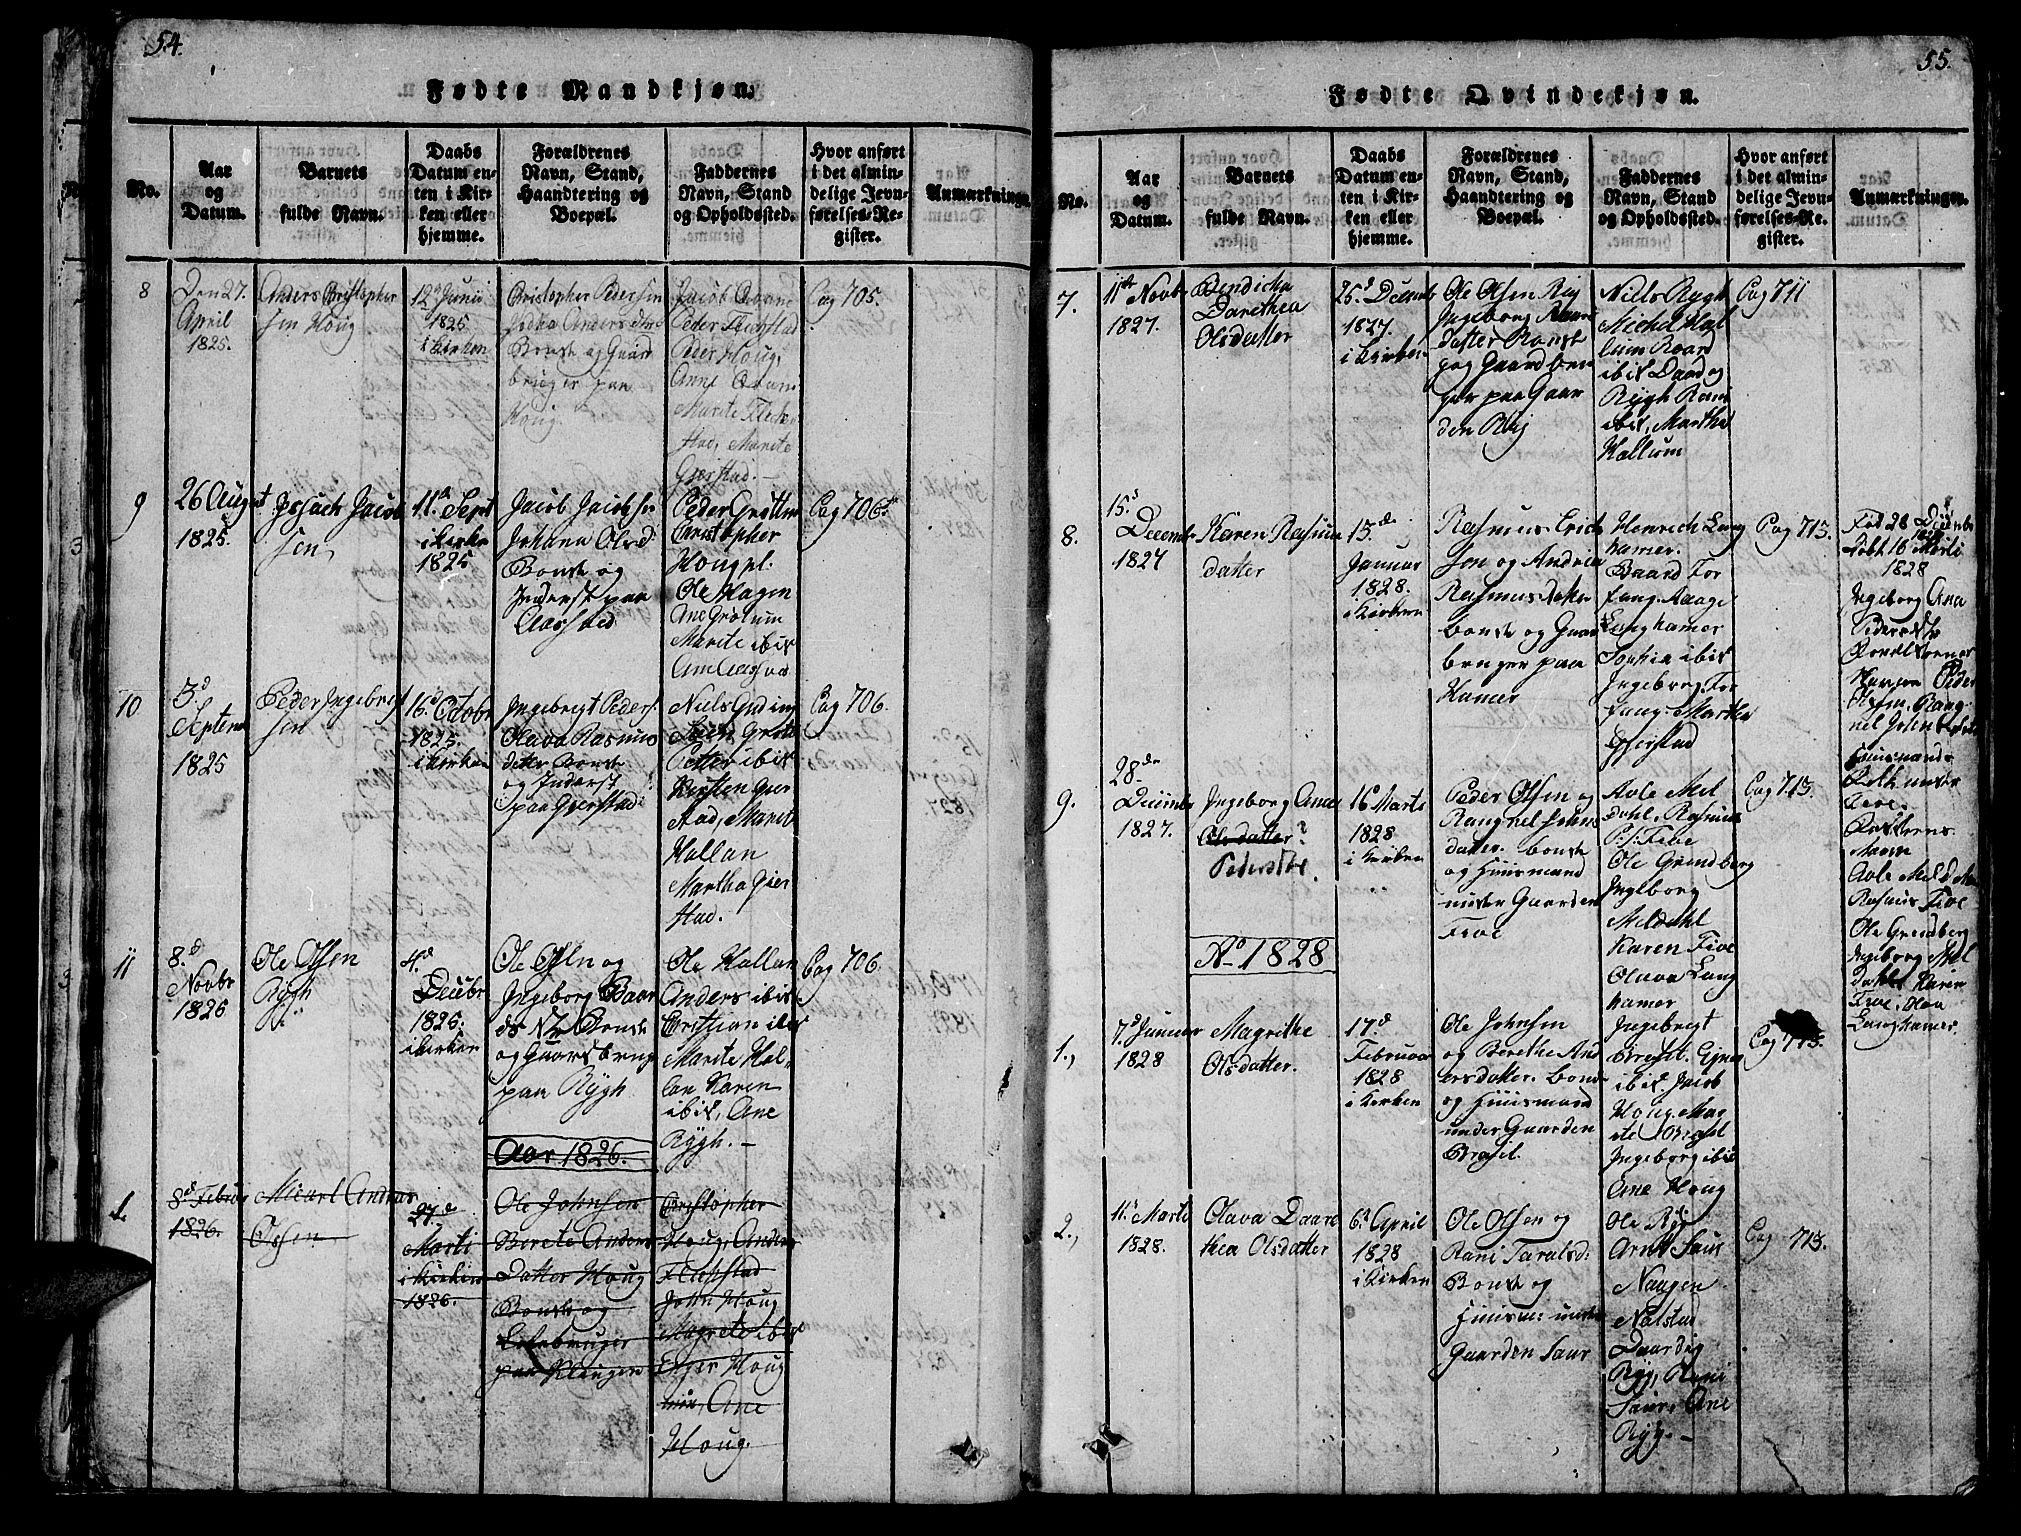 54.
Fødte Mandkjøn.
No.
Aar
og
Datum.
Barnets
fulde Navn.
Daabs
Datum en-
ten i Kir-
ken eller
hjemme.
Forældrenes
Navn, Stand,
Haandtering og
Boepæl.
Faddernes
Navn, Stand
og Opholdssted.
Hvor anført
i det almin-
delige Jevn-
førelses-Re-
gister.
Anmærkninger.
8
Den 27.
April
1825.
Anders Christopher
sen Houg
12te Junii
1825
i Kirken
Christopher Pedersen
Anders
Bonde og Gaard
bruger paa
Houg.
Jacob
Peder Flekstad
Peder Houg,
Anne
Marite Flek
stad, Marite
Gjerstad.
Pag 705.
9
26 August
1825.
Jacob
sen
11te Sept
i Kirken
1825
Jacob Jacobsen
Johana Olsd
Bonde og
Inderst paa
Aarstad
Peder Grøttem
Christopher
Houg pl.
Ole Hagen
Ane Grøtum
Marite ibid
Pag 706
10
3d
Septem
1825
Peder Ingebregt
sen
16d Octobr
1825.
i Kirken
Ingebregt Peders.
Olava Rasmus
datter Bonde
og Inderst
paa Gjerstad
Niels
Petter ibid
Kirsten Gjer
stad, Marit
Hallan
Martha Gjer
stad.
Pag 706.
11
8.d
Novbr
1826
Ole Olsen
Rygh
4.d
Decbr
1826.
i Kirken
Ole Olsen og
Ingeborg Baar
ds
og Gaardbrug
paa Rygh
Ole Hallan
Anders ibid
Christian ibid
Marite Hal-
lan Karen
ibid, Ane
Rygh. —
Pag 706.
Aar 1826.
1.
8de Februar
1826.
Andreas
Olsen
27.d
Marti
i Kirken
1826.
Ole Johnsen
Berete Anders
Datter Houg
Bonde og
paa
Christopher
Houg, Anders
Flekstad
John Houg
Magrete ibid
Houg
Ane
Houg.
55.
Fødte Qvindekjøn.
No.
Aar
og
Datum.
Barnets
fulde Navn.
Daabs
Datum en-
ten i Kir-
ken eller
hjemme.
Forældrenes
Navn, Stand,
Haandtering og
Boepæl.
Faddernes
Navn, Stand
og Opholdssted.
Hvor anført
i det almin-
delige Jevn-
førelses-Re-
gister.
Anmærkninger.
7.
11te Novbr
1827.
Bendicta
Dorethea
Olsdatter
25.d Decemb
1827.
i Kirken
Ole Olsen Rij
Ingeborg
datter Bonde
og Gaardbru
ger paa Gaar
den Rij
Niels Rygh
Michel Hal
lum
ibid
Rygh
ibid, Martha
Hallum
Pag 711
8.
15.d
Decemb
1827
Karen Rasmus
datter
13.de
Januar
1828.
i Kirken
Rasmus Erich
sen og Andrea
Rasmusdatter
bonde og Gaard
bruger paa
Hamer
Henrich Lang
hamer.
Baard For
fang. Aage
Langhamer
Sophia ibid
Ingeborg For
fang. Martha
Gjerstad
Pag 713.
Fød 28 Decemb
Døbt 16 Marti
1828
Ingeborg Ana
Pedersdtr
Forældrerner
Peder
Olsen. Rang-
nel John
Huusmands
Fave.
Fadderns
Navne
Avle Meldahl
Rasmus Five
Ole Grendberg
Ingeborg Mel
dahl Karen
Five, Olava
Langhamer.
9.
28.de
Decemb
1827.
Ingeborg Anna
Olsdatter?
Pedersdtr.
16 Marts
1828
i Kirken
Peder Olsen og
Rangnel Johns
datter. bonde
og Huusmand
under Gaarden
Five
Avle Mel
dahl. Rasmus
P.s. Five
Ole Grendberg
Ingeborg
Meldahl
Karen Five
Olava Lang
hamer
Pag 713.
Ao 1828
1.,
7.d Januar
1828
Magrethe
Olsdatter.
17.d
Februar
1828
i Kirken
Ole Johnsen
og Berethe And
ersdatter. bond
og Huusmand
under Gaarden
Brasil.
Ingebregt
Brasil. Ejner
ibid. Jacob
Houg. Mag
rete Brasil
Ingeborg ibid
Ane Houg
Pag 713.
2.,
11.d Marti
1828.
Olava Daare
thea Olsdatter
6.d April
1828
i Kirken
Ole Olsen og
Rani Taralsd:
Bonde og
Huusm: under
Gaarden Saur
Ole Rij.
Arnt Saur
Naugen
Nalstad
Rij, Rani
Saur, Ane
Rijg. —
Pag 713.